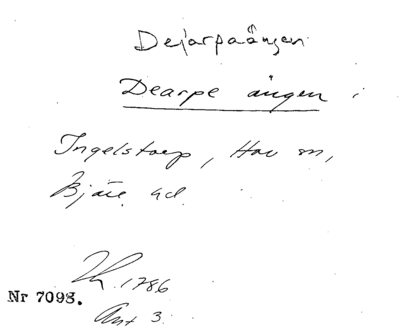 Dejarpaängen
Dearpe ängen i
Ingelstorp, Hov sn,
Bjäre hd.
1786
Nr 7098.
Akt 3.